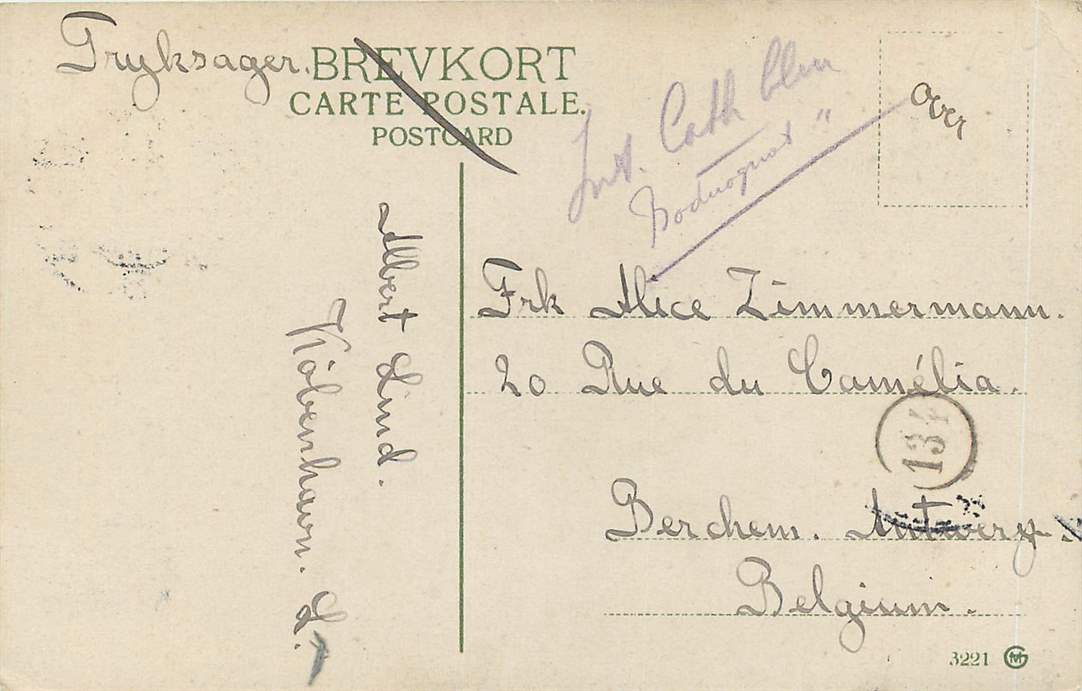 Tryksager.
BREVKORT
CARTE POSTALE.
POSTCARD
over
Albert Lind.
Kjöbenhavn. L.
Frk Alice Zimmermann.
20 Rue du Camélia.
134
Berchem. Antwerp.
Belgium.
3221